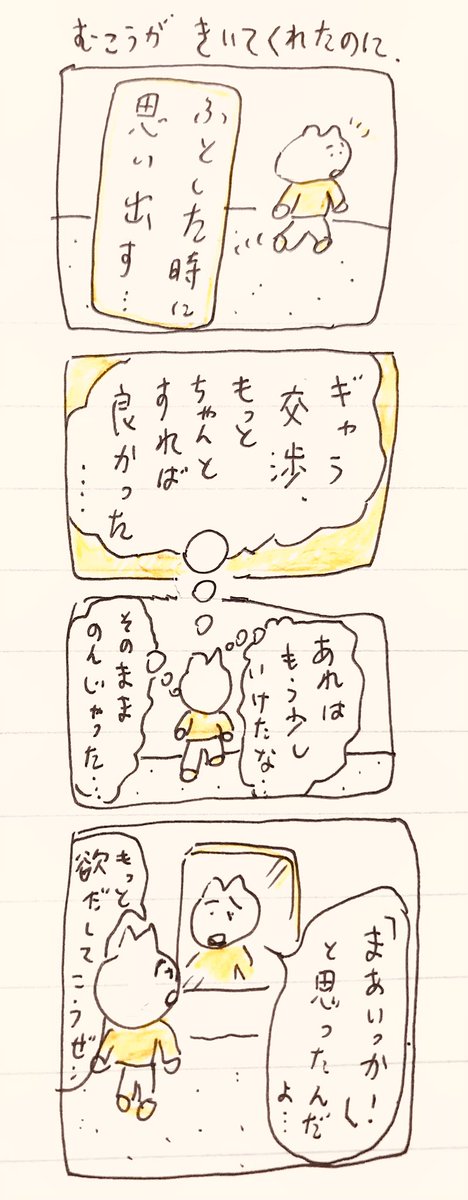 むこうが きいてくれたのに.
ふとした時に
思い出す…
ギャラ
交渉、
もっと
ちゃんと
すれば
良かった
……
あれは
もう少し
いけたな…
そのまま
のんじゃった…
「まあいっか!」
と思ったんだ
よ…
もっと
欲だして
こうぜ…